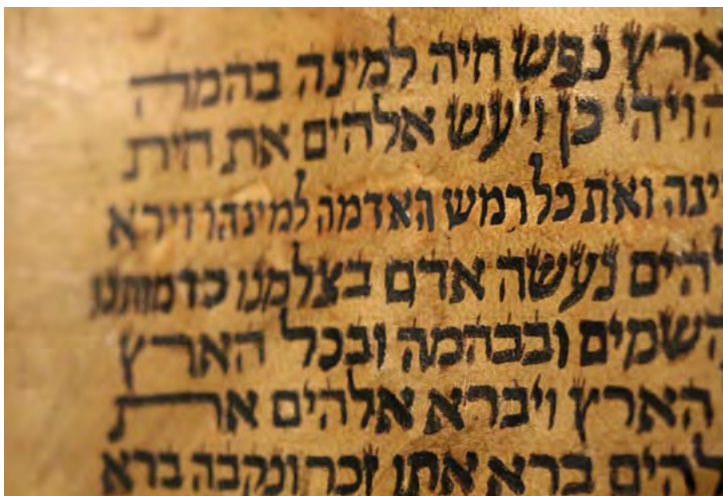 ארץ נפש חיה למינה בהמה
ויהי כן ויעש אלהים את חית
ינה ואת כל רמש האדמה למינהו וירא
הים נעשה אדם בצלמנו כדמותנו
השמים ובבהמה ובכל הארץ
הארץ ויברא אלהים את
להים ברא אתו זכר ונקבה ברא